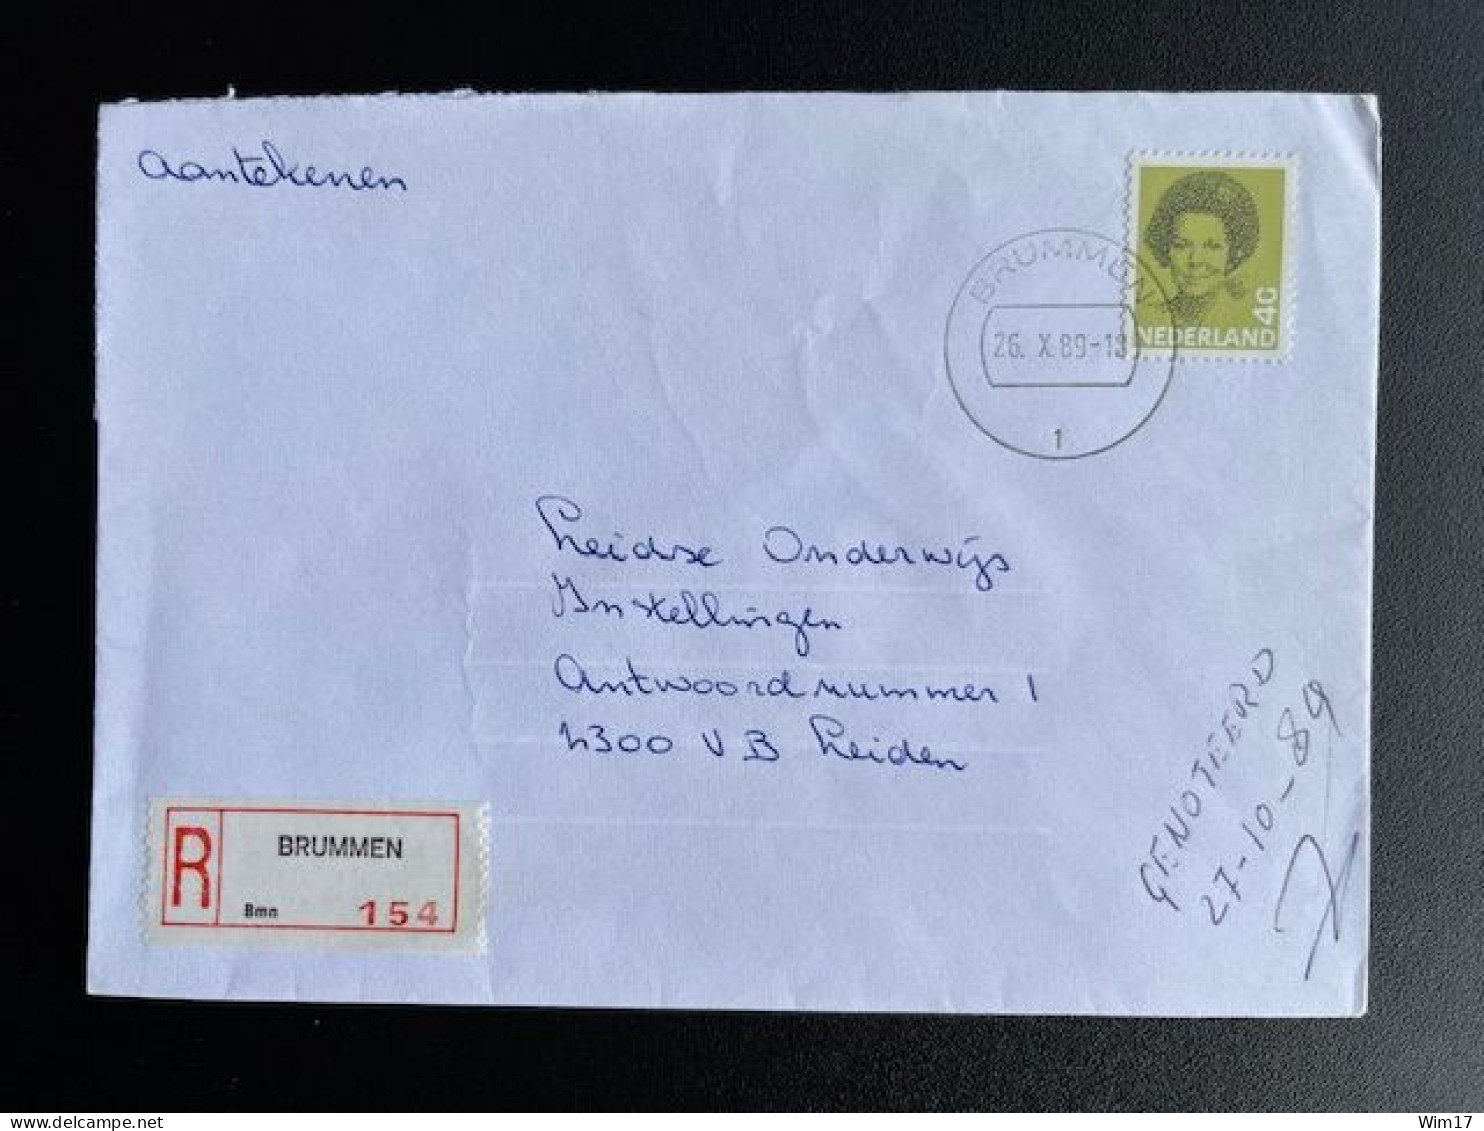 Aantekenen
BRUMMEN
26. X.89-18
1
4G
NEDERLAND
Leidse Onderwijs
Instellingen
Antwoordnummer 1
2300 VB Leiden
GENOTEERD
27-10-89
R
BRUMMEN
Bmn
154
Wim17